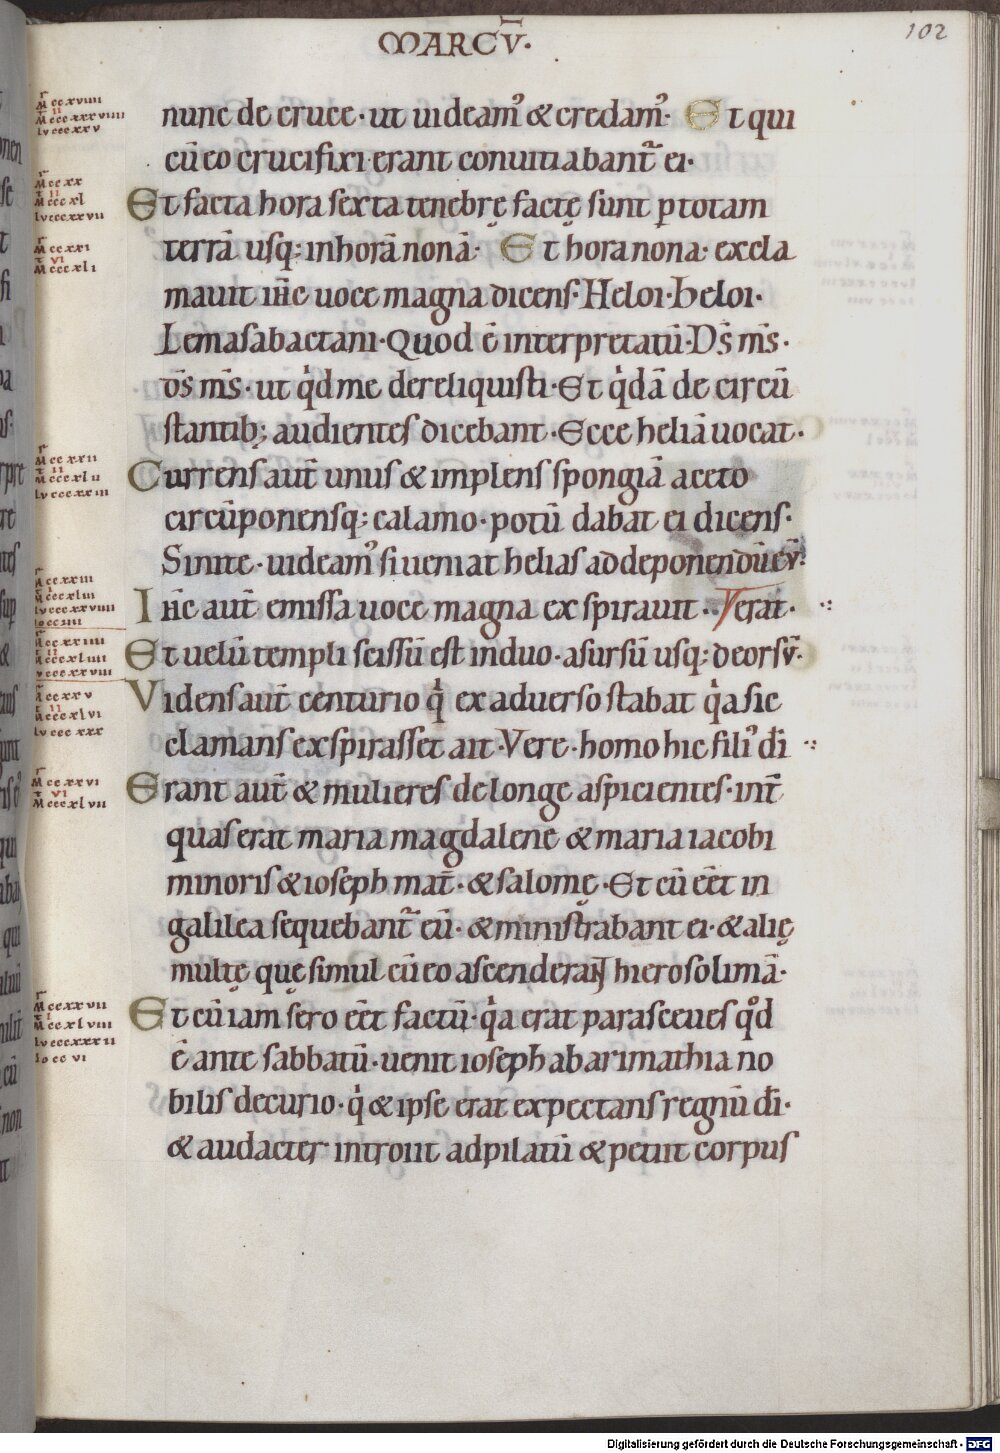 MARCV̄·
102
nunc de cruce· ut uideam᾽ & credam᾽· Et qui
cū eo crucifixi erant conuitiabant̃ ei·
Et facta hora sexta tenebrę factę sunt ꝑ totam
terrā usq; in horā nonā· Et hora nona· excla
mauit ih̄c uoce magna dicens· Heloi· heloi·
Lemasabactani· Quod ē interpretatū· D̄s m̄s·
d̄s m̄s· ut qͥd me dereliquisti· Et qͥdā de circū
stantib; audientes dicebant· Ecce heliā uocat·
Currens aut̄ unus & implens spongiā aceto
circūponensq; calamo· potū dabat ei dicens·
Sinite· uideam᾽ si ueniat helias ad deponendū ev̄·
Ih̄c aut̄ emissa uoce magna exspirauit· Verat·
Et uelū templi scissū est in duo· a sursū usq; deorsv̄·
Videns aut̄ centurio qͥ ex aduerso stabat qͥa sic
clamans exspirasset ait· Vere· homo hic fili᾽ dī
Erant aut̄ & mulieres de longe aspicientes· int̄
quas erat maria magdalene & maria iacobi
minoris & ioseph mat̄· & salomę· Et cū eēt in
galilea sequebant̃ eū· & ministrabant ei· & alię
multę quę simul cū eo ascenderant hierosolimā·
Et cū iam sero eēt factū· qͥa erat parasceues qͦd
ē ante sabbatū· uenit ioseph ab arimathia no
bilis decurio· qͥ & ipse erat expectans regnū dī·
& audacter introiit ad pilatū & petiit corpus
Digitalisierung gefördert durch die Deutsche Forschungsgemeinschaft - DFG